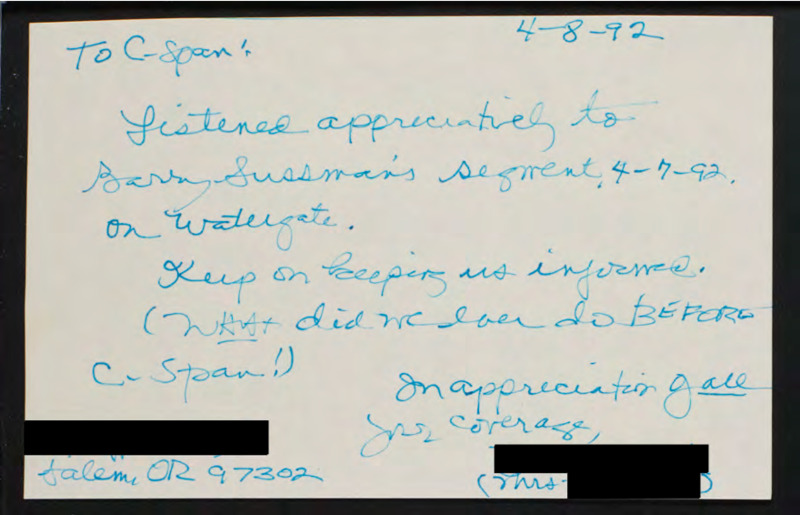 4-8-92
To C-Span!
Listened appreciatively to
Barry Sussman's segment, 4-7-92,
on Watergate.
Keep on keeping us informed.
(WHAt did we ever do BEFORE
C-Span!)
In appreciation of all
your coverage,
Salem, OR 97302
(Mrs.
)